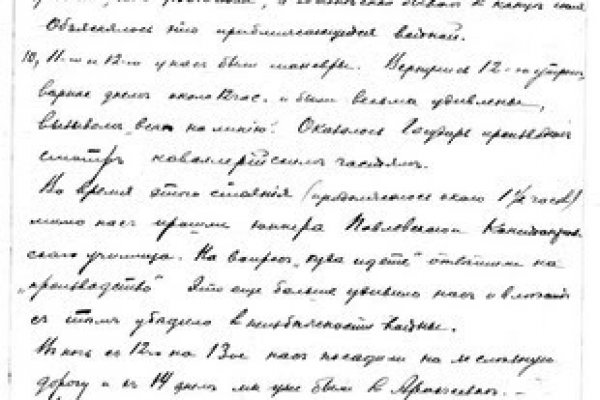 Объяснялось это приближающейся войной.
10, 11-го и 12-го у нас были маневры. Вернулись 12-го утром,
вернее днем около 12 час. и были весьма удивлены,
вызовом „всех на линию“. Оказалось Государь производит
смотр кавалерийским частям.
Во время этого стояния (продолжалось около 1½ часов)
мимо нас прошли юнкера Павловского
ского училища. На вопрос „куда идете“ ответили на
„производство“. Это еще больше удивило нас и
с этим убедило в неизбежности войны.
В ночь с 12го на 13ое нас посадили на железную
дорогу и 14 днем мы уже были в